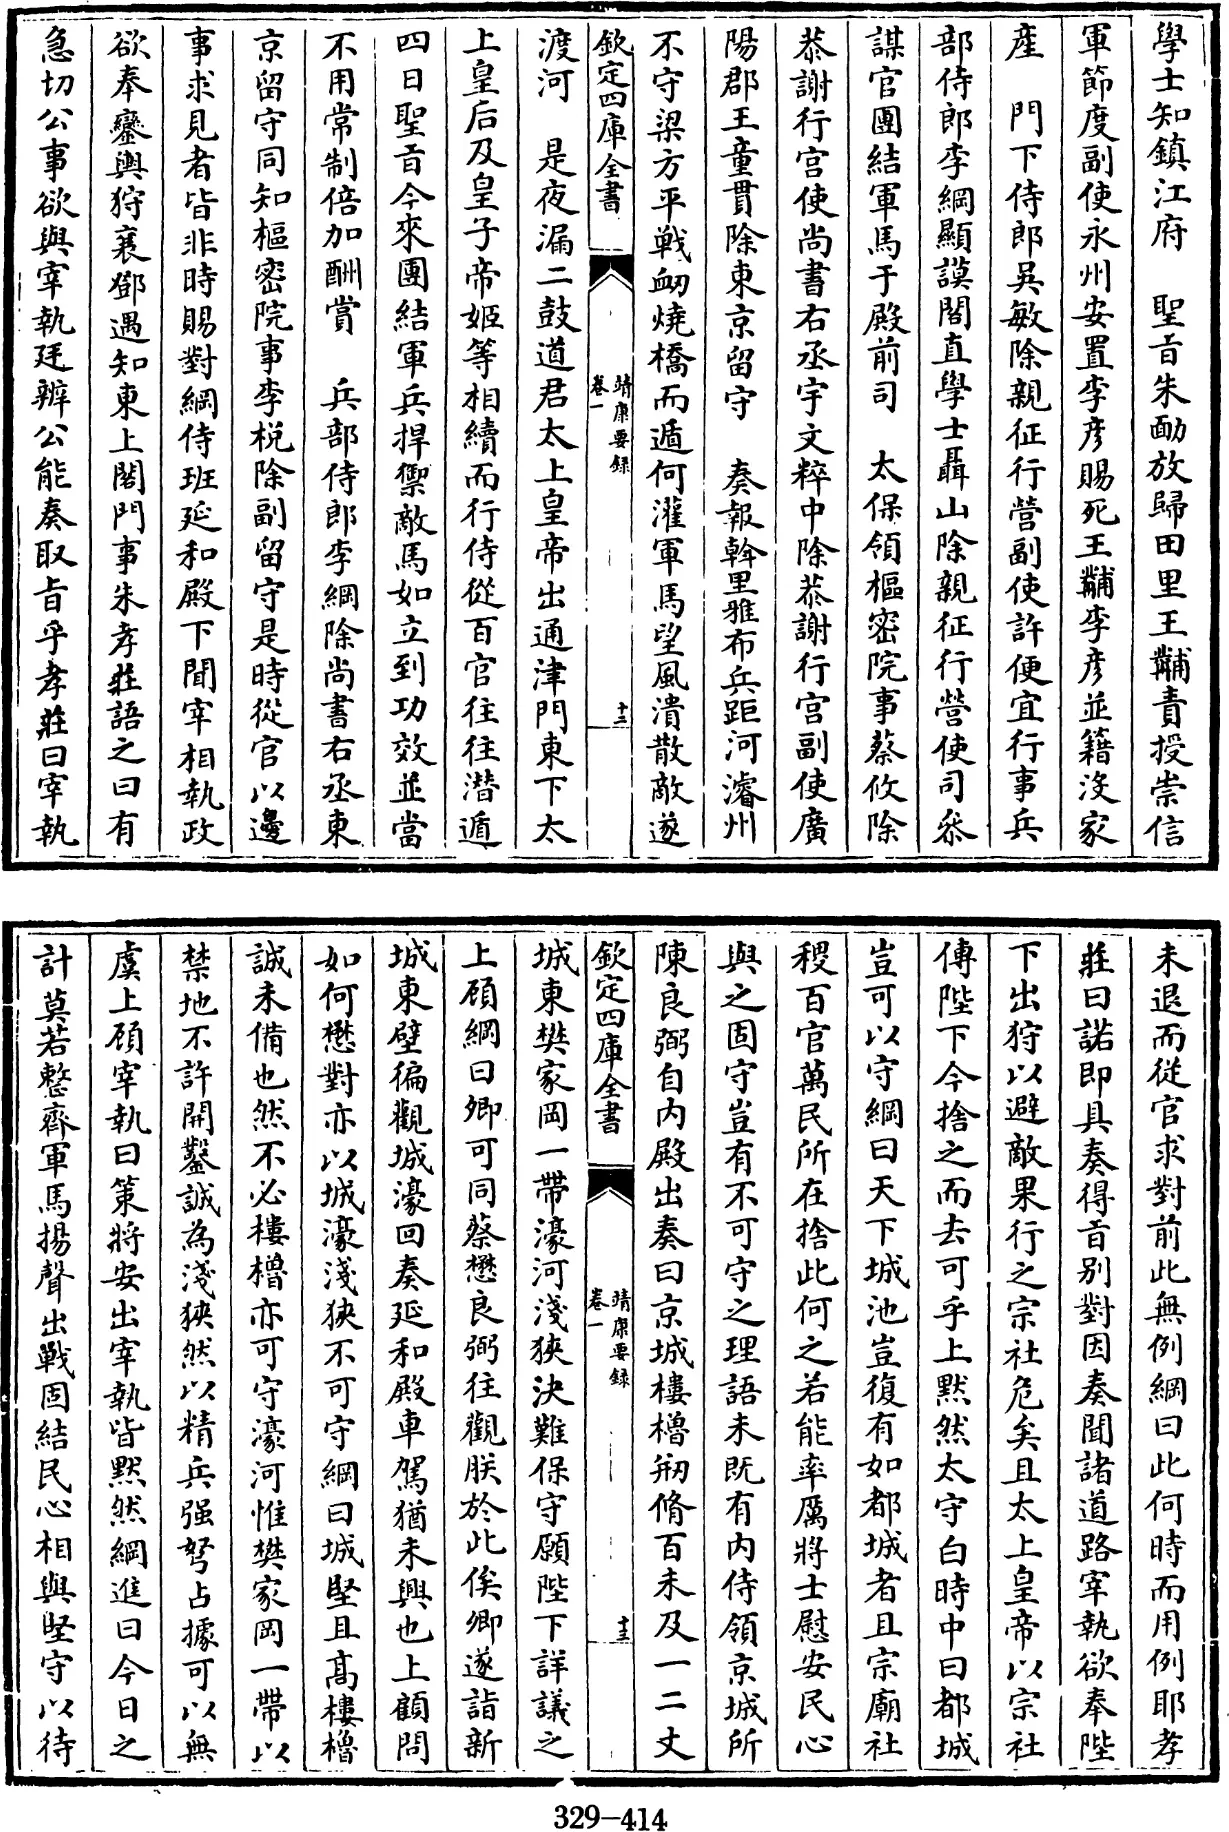 學士知鎮江府　聖旨朱勔放歸田里王黼責授崇信
軍節度副使永州安置李彦賜死王黼李彦並籍沒家
產　門下侍郎吳敏除親征行營副使許便宜行事兵
部侍郎李綱顯謨閣直學士聶山除親征行營使司叅
謀官團結軍馬于殿前司　太保領樞密院事蔡攸除
恭謝行宮使尚書右丞宇文粹中除恭謝行宮副使廣
陽郡王童貫除東京留守　奏報斡里雅布兵距河濬州
不守梁方平戰衂燒橋而遁何灌軍馬望風潰散敵遂
欽定四庫全書
靖康要録
卷一
十二
渡河　是夜漏二鼓道君太上皇帝出通津門東下太
上皇后及皇子帝姬等相續而行侍從百官往往潜遁
四日聖旨今來團結軍兵捍禦敵馬如立到功效並當
不用常制倍加酬賞　兵部侍郎李綱除尚書右丞東
京留守同知樞密院事李梲除副留守是時從官以邊
事求見者皆非時賜對綱侍班延和殿下聞宰相執政
欲奉鑾輿狩襄鄧遇知東上閣門事朱孝莊語之曰有
急切公事欲與宰執廷辨公能奏取旨乎孝莊曰宰執
未退而從官求對前此無例綱曰此何時而用例耶孝
莊曰諾即具奏得旨别對因奏聞諸道路宰執欲奉陛
下出狩以避敵果行之宗社危矣且太上皇帝以宗社
傳陛下今捨之而去可乎上默然太守白時中曰都城
豈可以守綱曰天下城池豈復有如都城者且宗廟社
稷百官萬民所在捨此何之若能率厲將士慰安民心
與之固守豈有不可守之理語未既有内侍領京城所
陳良弼自内殿出奏曰京城樓櫓剏脩百未及一二丈
欽定四庫全書
靖康要録
卷一
十三
城東樊家岡一帶濠河淺狹決難保守願陛下詳議之
上顧綱曰卿可同蔡懋良弼往觀朕於此俟卿遂詣新
城東壁徧觀城濠回奏延和殿車駕猶未興也上顧問
如何懋對亦以城濠淺狹不可守綱曰城堅且高樓櫓
誠未備也然不必樓櫓亦可守濠河惟樊家岡一帶以
禁地不許開鑿誠為淺狹然以精兵强弩占據可以無
虞上顧宰執曰策將安出宰執皆默然綱進曰今日之
計莫若整齊軍馬揚聲出戰固結民心相與堅守以待
329-414